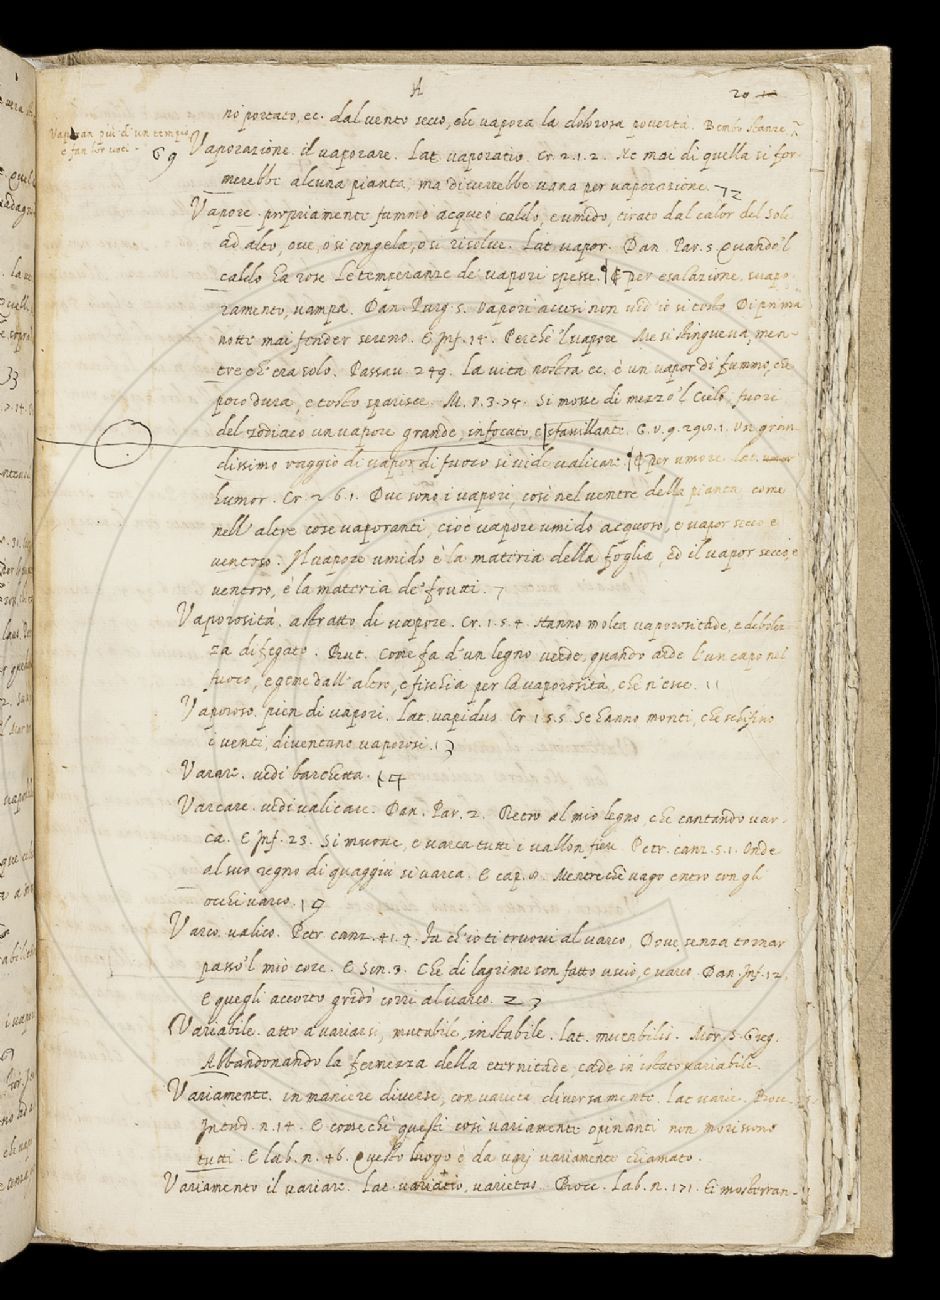 A
20
no portato, ec. dal vento secco, che vapora la dolorosa povertà. Bembo Stanze.
Vaporan più d'un tempio
e fan lor voti.
69
Vaporazione. il vaporare. Lat. vaporatio. Cr. 2.1.2. Ne mai di quella si for-
merebbe alcuna pianta, ma diverrebbe vana per vaporazione. 72
Vapore. propriamente fummo acqueo caldo, e umido, tirato dal calor del Sole
ad alto, ove, o si congela, o si risolve. Lat. vapor. Dan. Par. 5. Quando 'l
caldo ha rose Le temperanze de' vapori spesse. ¶ Per esalazione, svapo-
ramento, vampa. Dan. Purg. 5. Vapori accesi non vid' io sì tosto Di prima
notte mai fender sereno. E Inf. 14. Perchè 'l vapore Me' si stingueva, men-
tre ch'era solo. Passav. 249. La vita nostra ec. è un vapor di fummo, che
poco dura, e tosto sparisce. M. V. 3.74. Si mosse di mezzo 'l Cielo, fuori
del zodiaco un vapore grande, infocato, e sfavillante. G. V. 9. 290. 1. Un gran-
dissimo raggio di vapor di fuoco si vide valicare. ¶ Per umore. Lat.
humor. Cr. 2 6.1. Due sono i vapori, così nel ventre della pianta, come
nell' altre cose vaporanti, cioè vapore umido acquoso, e vapor secco e
ventoso. Il vapore umido è la materia della foglia, ed il vapor secco, e
ventoso, è la materia de' frutti. 7
Vaporosità. astratto di vapore. Cr. 1.5.4. Hanno molta vaporositade, e debolez-
za di fegato. But. Come fa d'un legno verde, quando arde l'un capo nel
fuoco, e geme dall' altro, e fischia per la vaporosità, che n'esce. 11
Vaporoso. pien di vapori. Lat. vapidus. Cr. 1 5.5. Se hanno monti, che schifino
i venti, diventano vaporosi. 13
Varare. vedi barchetta. 14
Varcare. vedi valicare. Dan. Par. 2. Retro al mio legno, che cantando var-
ca. E Inf. 23. Si muove, e varca tutti i vallon feri. Petr. canz. 5.1. Onde
al suo regno di quaggiù si varca. E cap. 8. Mentre che vago entro con gli
occhi varco. 19
Varco. valico. Petr. canz. 41.4. Fa ch'io ti truovi al varco, Dove senza tornar
passò 'l mio core. E Son. 3. Che di lagrime son fatto uscio, e varco. Dan. Inf. 12.
E quegli accorto gridò corri al varco. 23
Variabile. atto a variarsi, mutabile, instabile. Lat. mutabilis. Mor. S. Greg.
Abbandonando la fermezza della eternitade, cade in istato variabile.
Variamente. in maniere diverse, con varietà, diversamente. Lat. varie. Bocc.
Introd. n. 14. E come che questi così variamente opinanti non morissono
tutti. E lab. n. 46. Questo luogo è da varj variamente chiamato.
Variamento il variare. Lat. variatio, varietas. Bocc. Lab. n. 171. Ti mosterran-